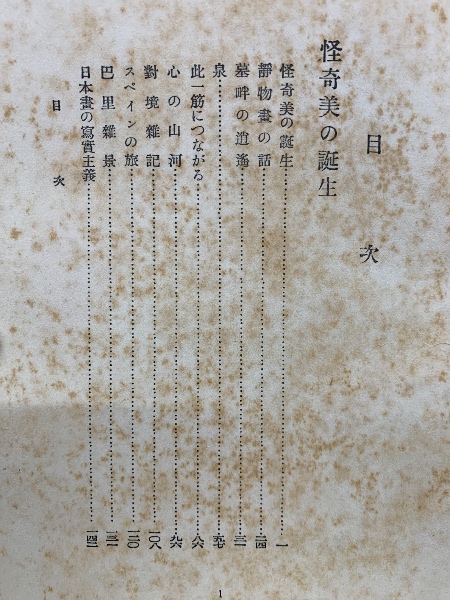 目次
怪奇美の誕生
怪奇美の誕生……一
靜物畫の話……二四
墓畔の逍遙……三一
泉……五七
此一筋につながる……八六
心の山河……九六
對境雜記……一〇八
スペインの旅……一二〇
巴里雜景……一三一
日本畫の寫實主義……一四一
目次
1